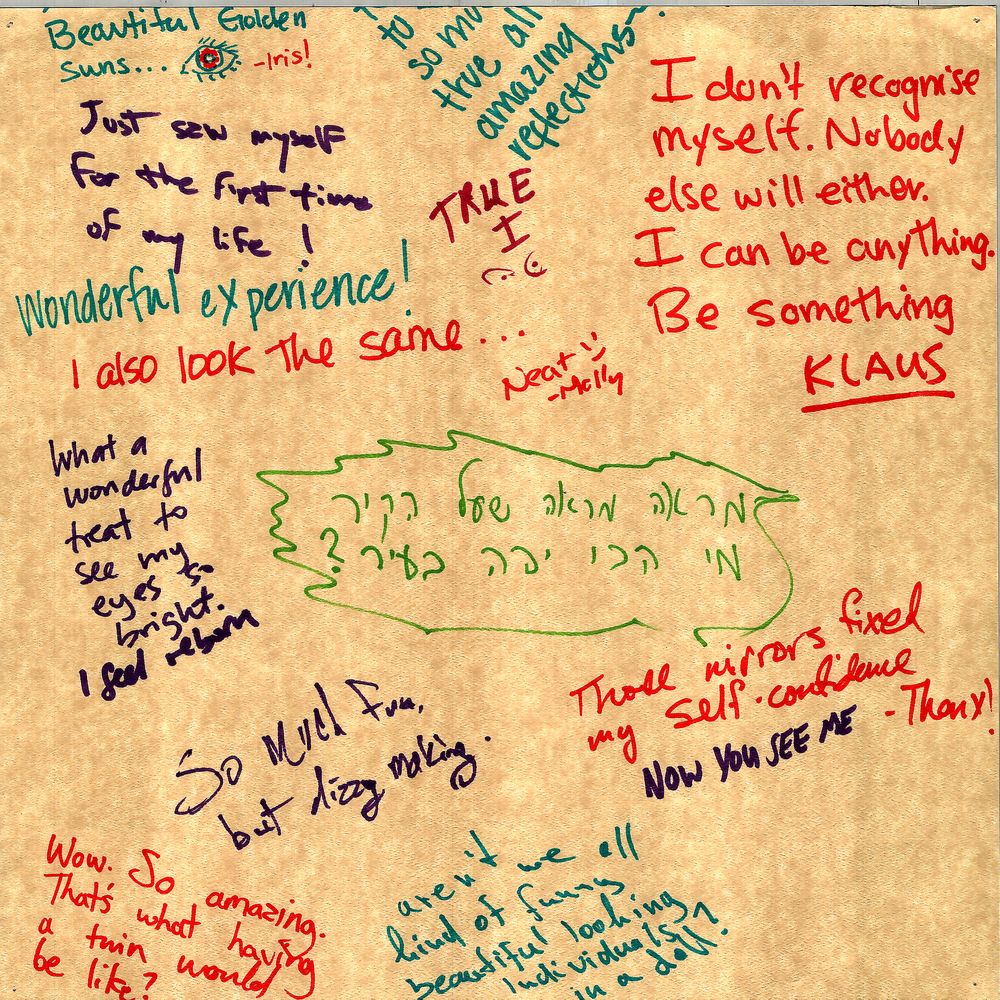 Beautiful Golden
suns... -Iris!
to
so mu
true all
amazing
reflections~
I don't recognise
myself. Nobody
else will either.
I can be anything.
Be something
KLAUS
Just saw myself
for the first time
of my life!
TRUE
I
Wonderful experience!
I also look the same...
Neat
-Molly
What a
wonderful
treat to
see my
eyes so
bright.
I feel reborn
מראה מראה שעל הקיר
מי הכי יפה בעיר?
Those mirrors fixed
my self-confidence
-Thanx!
NOW YOU SEE ME
So Much Fun,
but dizzy making.
Wow. So amazing.
That's what having
a twin would
be like?
aren't we all
kind of funny
beautiful looking
individuals
in a